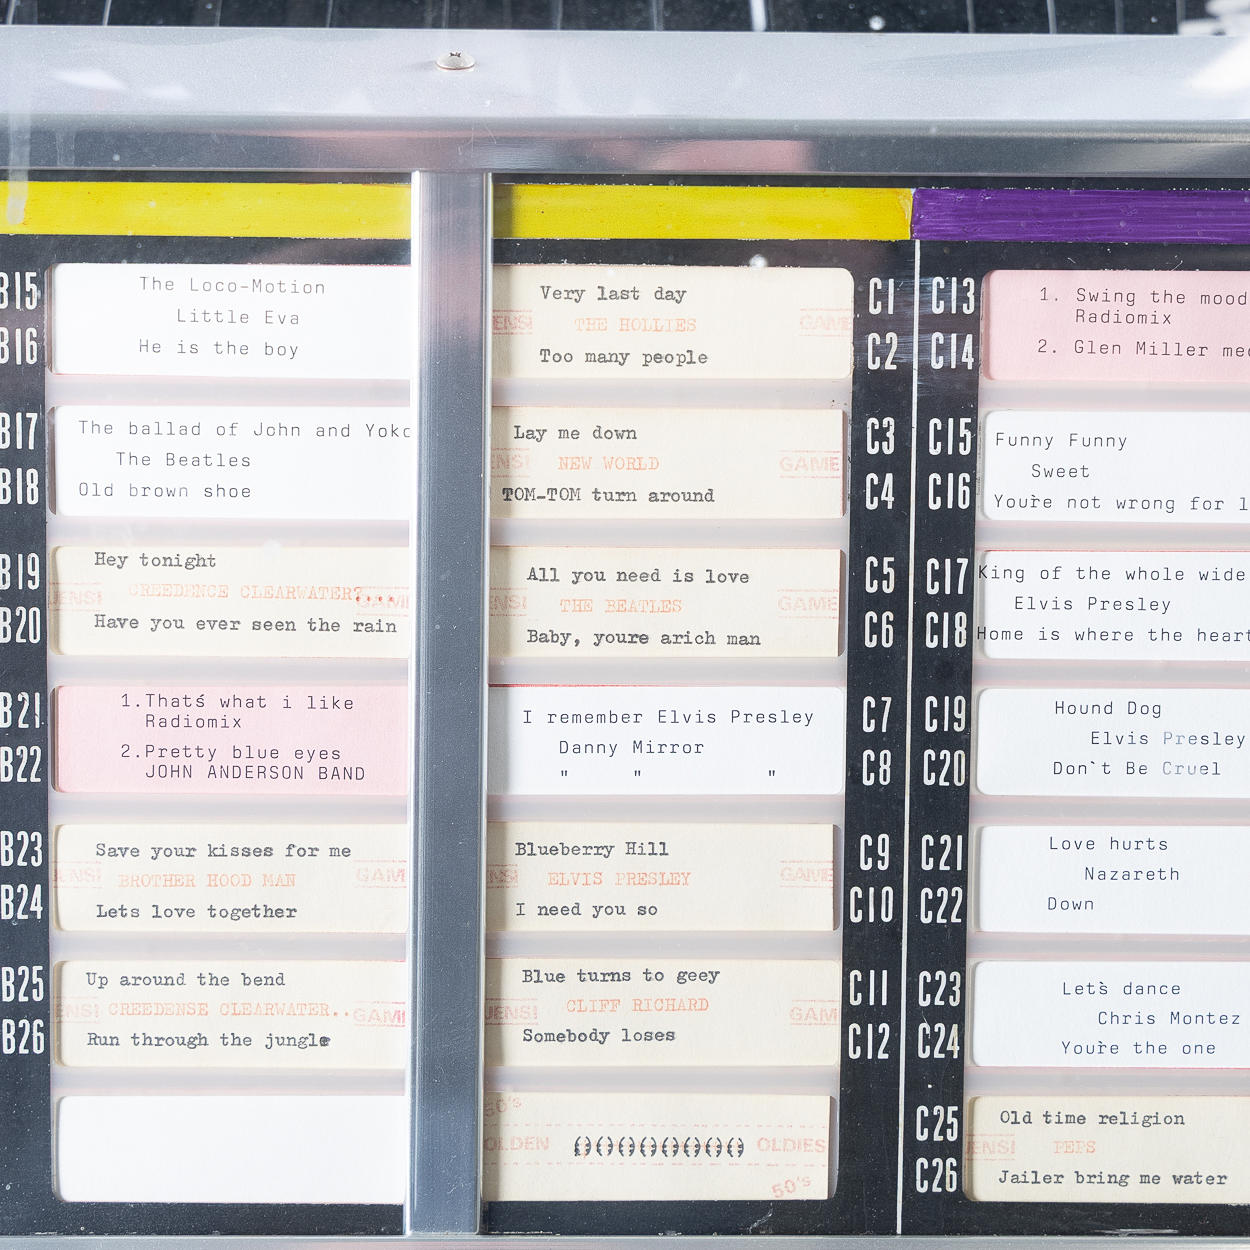 B15
The Loco-Motion
Little Eva
B16
He is the boy
B17
The ballad of John and Yoko
The Beatles
B18
Old brown shoe
B19
Hey tonight
CREEDENCE CLEARWATER?...
GAME
B20
Have you ever seen the rain
B21
1.Thatś what i like
Radiomix
B22
2.Pretty blue eyes
JOHN ANDERSON BAND
B23
Save your kisses for me
BROTHER HOOD MAN
GAM
B24
Lets love together
B25
Up around the bend
ENSI CREEDENSE CLEARWATER.. GAME
B26
Run through the jungle
Very last day
C1
ENSI THE HOLLIES GAME
Too many people
C2
Lay me down
C3
ENSI NEW WORLD GAME
TOM-TOM turn around
C4
All you need is love
C5
ENSI THE BEATLES GAME
Baby, youre arich man
C6
I remember Elvis Presley
C7
Danny Mirror
" " "
C8
Blueberry Hill
C9
NSI ELVIS PRESLEY GAME
I need you so
C10
Blue turns to geey
C11
JENSI CLIFF RICHARD GAM
Somebody loses
C12
50's
OLDEN ()()()()()()()()() OLDIES
50's
C13
1. Swing the mood
Radiomix
C14
2. Glen Miller med
C15
Funny Funny
Sweet
C16
You're not wrong for l
C17
King of the whole wide
Elvis Presley
C18
Home is where the heart
C19
Hound Dog
Elvis Presley
C20
Don`t Be Cruel
C21
Love hurts
Nazareth
C22
Down
C23
Let's dance
Chris Montez
C24
You're the one
C25
Old time religion
JENSI PEPS
C26
Jailer bring me water